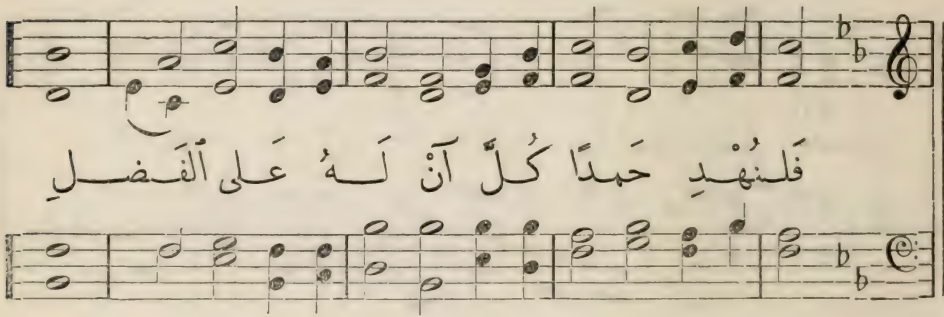 فَلنُهْدِ حَمدًا كُلَّ آنْ لَهُ عَلى ٱلفَضلِ